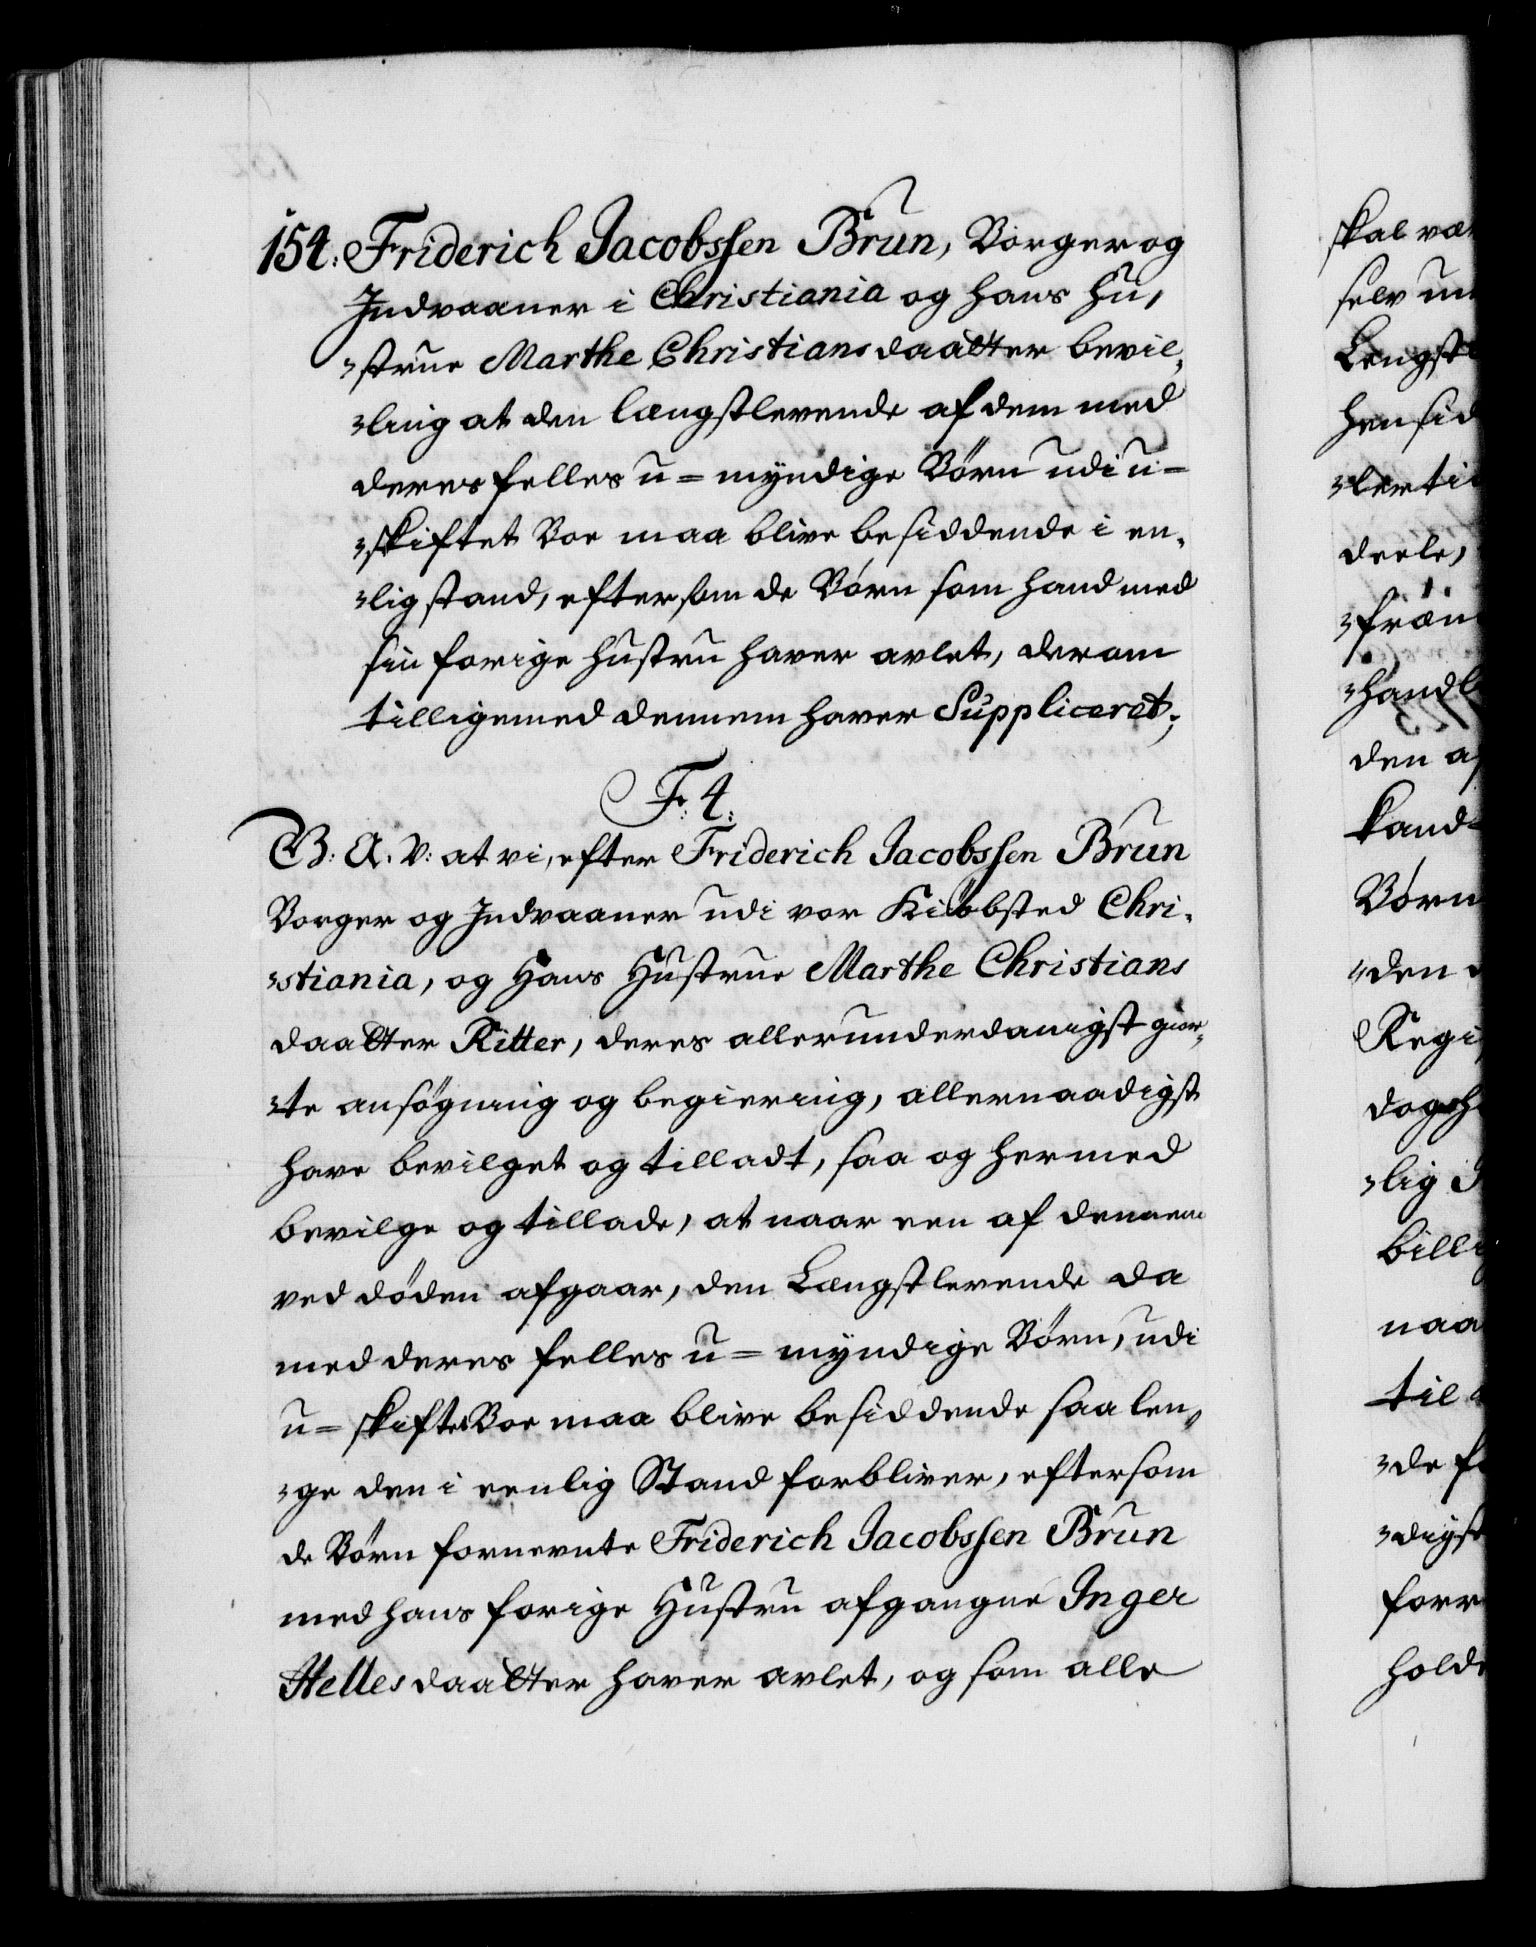 154: Friderich Jacobssen Brun, Borger og
Indvaaner i Christiania og hans Hu,
„strue Marthe Christiansdaatter bevil„
„ling at den længstlevende af dem med
deres felles u=myndige Børn udi u=
„skiftet Boe maa blive besiddende i en„
„lig stand, eftersom de Børn som hand med
sin forige hustru haver avlet, derom
tilligemed dennem haver Suppliceret;
F. 4.
G: A. V: at vi, efter Friderich Jacobssen Brun
Borger og Indvaaner udi vor Kiöbsted Chri„
„stiania, og Hans Hustrue Marthe Christians
daatter Ritter, deres allerunderdanigst giør„
„te ansøgning og begiering, allernaadigst
have bevilget og tilladt, saa og hermed
bevilge og tillade, at naar een af dennem
ved døden afgaar, den Længstlevende da
med deres felles u=myndige Børn, udi
u=skiftet Boe maa blive besiddende saa len„
„ge den i eenlig Stand forbliver, eftersom
de Børn fornevnte Friderich Jacobssen Brun
med hans forige Hustru afgangne Inger
Hellesdaatter haver avlet, og som alle
skal væ
selv
Længst
hensid
„ler ti
deele,
„frœn
„handl
den a
kand
Børn
„den
Regi
dogh
„lig
bill
naa
til
„de f
„digst
forr
holde